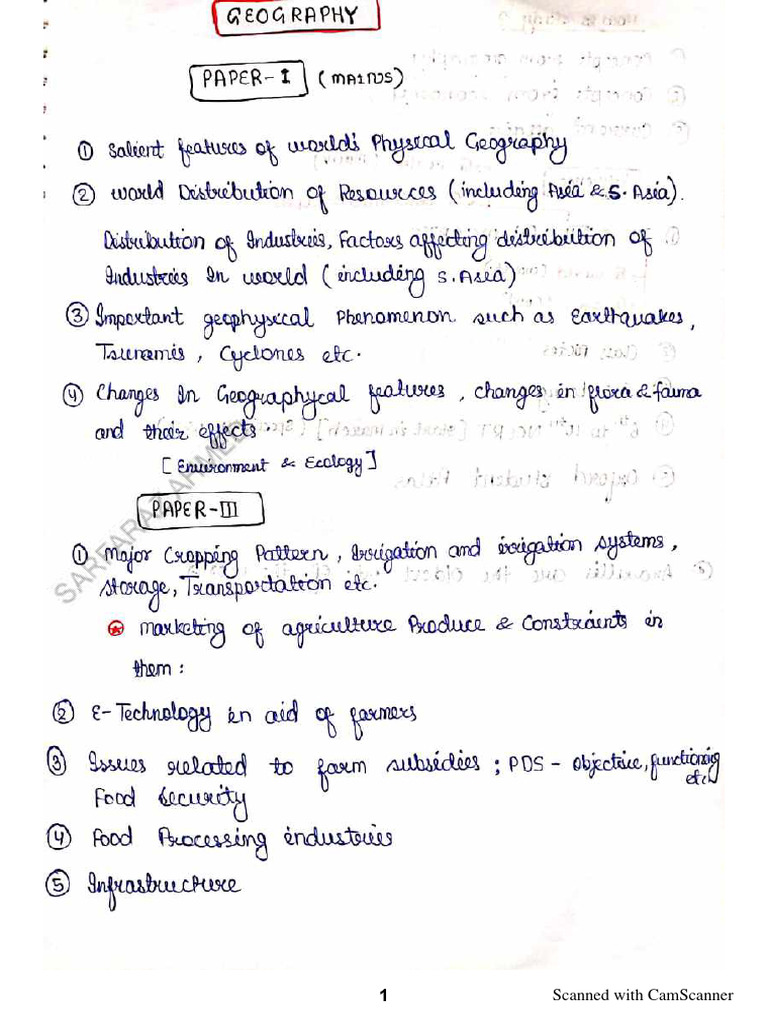 GEOGRAPHY
PAPER-I (MAINS)
① Salient features of world's Physical Geography
② World Distribution of Resources (including Asia & S. Asia).
Distribution of Industries, Factors affecting distribution of
Industries In world (including S. Asia)
③ Important geophysical Phenomenon such as Earthquakes,
Tsunamis, Cyclones etc.
④ Changes In Geographycal features, changes in flora & fauna
and their effects
[Environment & Ecology]
PAPER-III
① Major Cropping Pattern, Irrigation and irrigation systems,
storage, Transportation etc.
Marketing of agriculture Produce & Constraints in
them:
② E-Technology in aid of farmers
③ Issues related to farm subsidies; PDS - objective, functioning
etc
Food Security
④ Food Processing industries
⑤ Infrastructure
SARFARAZ AHMED
1
Scanned with CamScanner